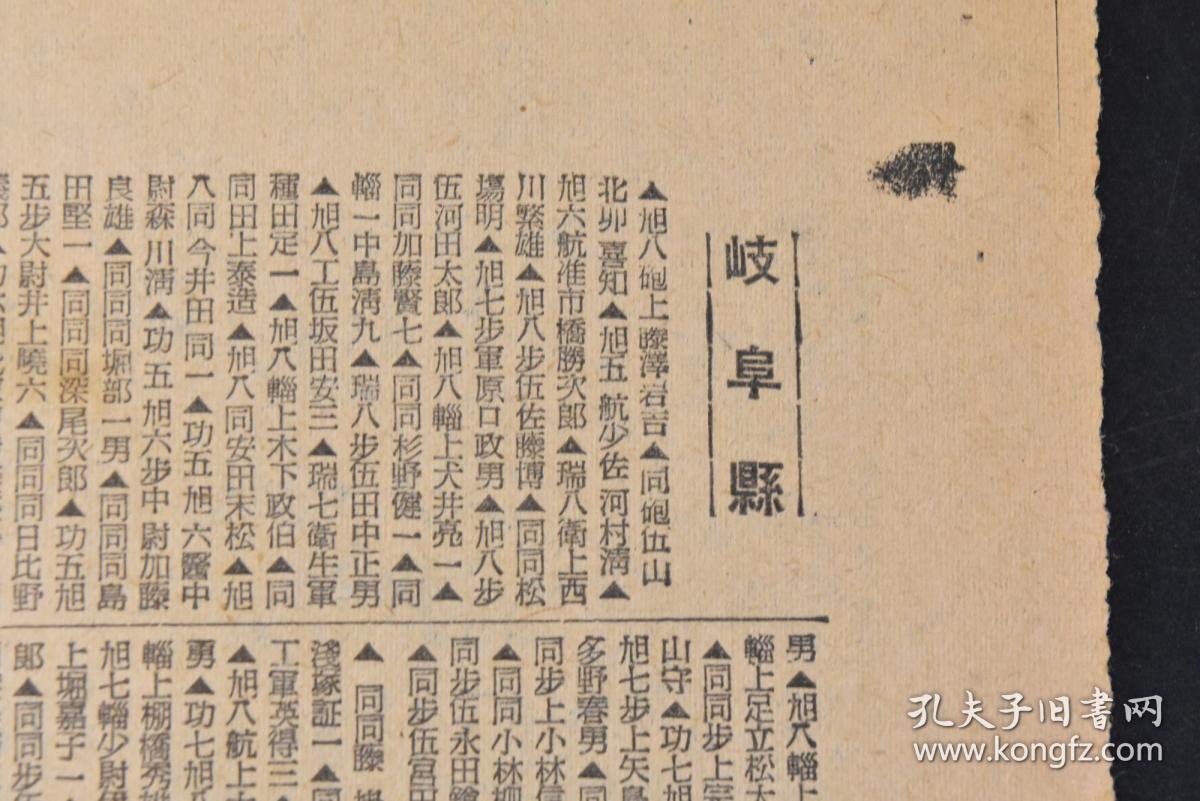 岐阜縣
▲旭八砲上藤澤岩吉▲同砲伍山
北卯喜知▲旭五航少佐河村淸▲
旭六航准市橋勝次郎▲瑞八衞上西
川繁雄▲旭八步伍佐藤博▲同同松
場明▲旭七步軍原口政男▲旭八步
伍河田太郎▲旭八輜上犬井亮一▲
同同加藤賢七▲同同杉野健一▲同
輜一中島淸九▲瑞八步伍田中正男
▲旭八工伍坂田安三▲瑞七衞生軍
種田定一▲旭八輜上木下政伯▲同
同田上泰造▲旭八同安田末松▲旭
八同今井田同一▲功五旭六醫中
尉森川淸▲功五旭六步中尉加藤
良雄▲同同同堀部一男▲同同同島
田堅一▲同同同深尾次郎▲功五旭
五步大尉井上曉六▲同同同日比野
男▲旭八輜上
輜上足立松太
▲同同步上宗
山守▲功七旭
旭七步上矢島
多野春男▲同
同步上小林信
▲同同小林柳
同步伍永田
▲同步伍宮田
▲同同藤
淺塚証一▲同
工軍英得三▲
▲旭八航上
勇▲功七旭八
輜上棚橋秀
旭七輜少尉伊
上堀嘉子一▲
郎▲同同步
孔夫子旧书网
www.kongfz.com